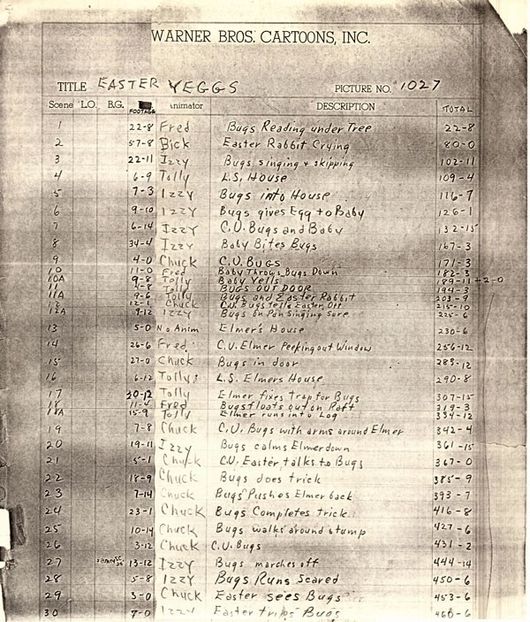 WARNER BROS. CARTOONS, INC.
TITLE EASTER YEGGS PICTURE NO. 1027
Scene L.O. B.G. FOOTAGE Animator DESCRIPTION TOTAL
1 22-8 Fred Bugs Reading under Tree 22-8
2 57-8 Bick Easter Rabbit Crying 80-0
3 22-11 Izzy Bugs singing & skipping 102-11
4 6-9 Tolly L.S. House 109-4
5 7-3 Izzy Bugs into House 116-7
6 9-10 Izzy Bugs gives Egg to Baby 126-1
7 6-14 Izzy C.U. Bugs and Baby 132-15
8 34-4 Izzy Baby Bites Bugs 167-3
9 4-0 Chuck C.U. BUGS 171-3
10 11-0 Fred Baby Throws Bugs Down 182-3
10A Tolly Baby Yells 189-11 +2-0
11 Tolly BUGS OUT DOOR 194-3
11A 9-6 Tolly Bugs and Easter Rabbit 203-9
12 12-1 Chuck Bugs tells Easter Off 215-10
12A 9-12 Izzy Bugs on Pan Singing Sore 225-6
13 5-0 No Anim Elmer's House 230-6
14 26-6 Fred C.U. Elmer Peeking out Window 256-12
15 27-0 Chuck Bugs in door 283-12
16 6-12 Tolly L.S. Elmers House 290-8
17 20-12 Tolly Elmer fixes trap for Bugs 307-15
18 11-4 Fred Bugs floats out on Raft 319-3
18A 15-9 Tolly Elmer runs into Log 334-12
19 7-8 Chuck C.U. Bugs with arms around Elmer 342-4
20 19-11 Izzy Bugs calms Elmer down 361-15
21 5-1 Chuck C.U. Easter talks to Bugs 367-0
22 18-9 Chuck Bugs does trick 385-9
23 7-14 Chuck Bugs Pushes Elmer back 393-7
24 23-1 Chuck Bugs Completes trick 416-8
25 10-14 Chuck Bugs walks around stump 427-6
26 3-12 Chuck C.U. Bugs 431-2
27 13-12 Izzy Bugs marches off 444-14
28 5-8 Izzy Bugs Runs Scared 450-6
29 3-0 Chuck Easter sees Bugs 453-6
30 7-0 Izzy Easter trips Bugs 460-6